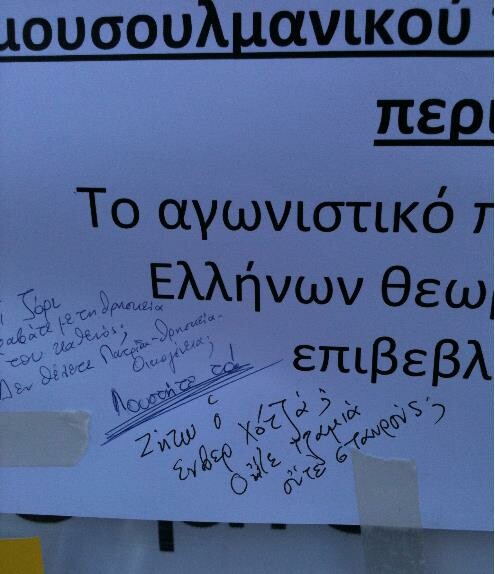 μουσουλμανικού
περι
Το αγωνιστικό π
Ελλήνων θεωρ
επιβεβλ
ζόρι
τραβάτε με τη θρησκεία
του καθενός;
Δεν θέλετε Πατρίδα-Θρησκεία-
Οικογένεια;
Πουστήτε το!
Ζήτω ὁ
Ενβερ Χότζά
Οὔτε τζαμιά
οὔτε σταυρούς;